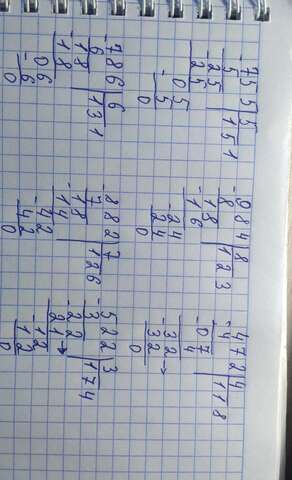 -755 5 -984 8 -472 4
5 151 8 123 4 118
-25 -18 -07
25 16 4
-05 -24 -32→
5 24 32
0 0 0
-786 6 -882 7 -522 3
6 131 7 126 3 174
-18 -18 -22
18 14 21→
-06 -42 -12
6 42 12
0 0 0